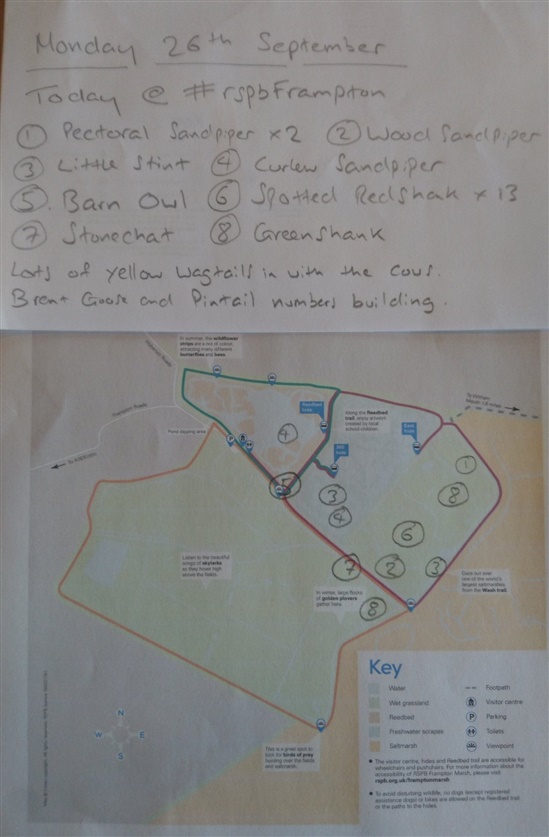 Monday 26th September
Today @ #rspbFrampton
① Pectoral Sandpiper x2 ② Wood Sandpiper
③ Little Stint ④ Curlew Sandpiper
⑤. Barn Owl ⑥ Spotted Redshank x 13
⑦ Stonechat ⑧ Greenshank
Lots of yellow wagtails in with the cows.
Brent Goose and Pintail numbers building.
In summer, the wildflower
strips are a riot of colour
attracting many different
butterflies and bees.
Frampton Roads
Along the Reedbed
trail, enjoy artwork
created by local
school children
Reedbed
hide
East
hide
④
①
⑤
③
⑧
④
⑥
⑦
②
③
⑧
Listen to the beautiful
songs of skylarks
as they hover high
above the fields.
In winter, large flocks
of golden plovers
gather here.
Gaze out over
one of the world's
largest saltmarshes
from the Wash trail
This is a great spot to
look for birds of prey
hunting over the fields
and saltmarsh.
N
W E
S
Key
Water
Wet grassland
Reedbed
Freshwater scrapes
Saltmarsh
Footpath
Visitor centre
P Parking
Toilets
Viewpoint
• The visitor centre, hides and Reedbed trail are accessible for
wheelchairs and pushchairs. For more information about the
accessibility of RSPB Frampton Marsh, please visit
rspb.org.uk/framptonmarsh
• To avoid disturbing wildlife, no dogs (except registered
assistance dogs) or bikes are allowed on the Reedbed trail
or the paths to the hides.